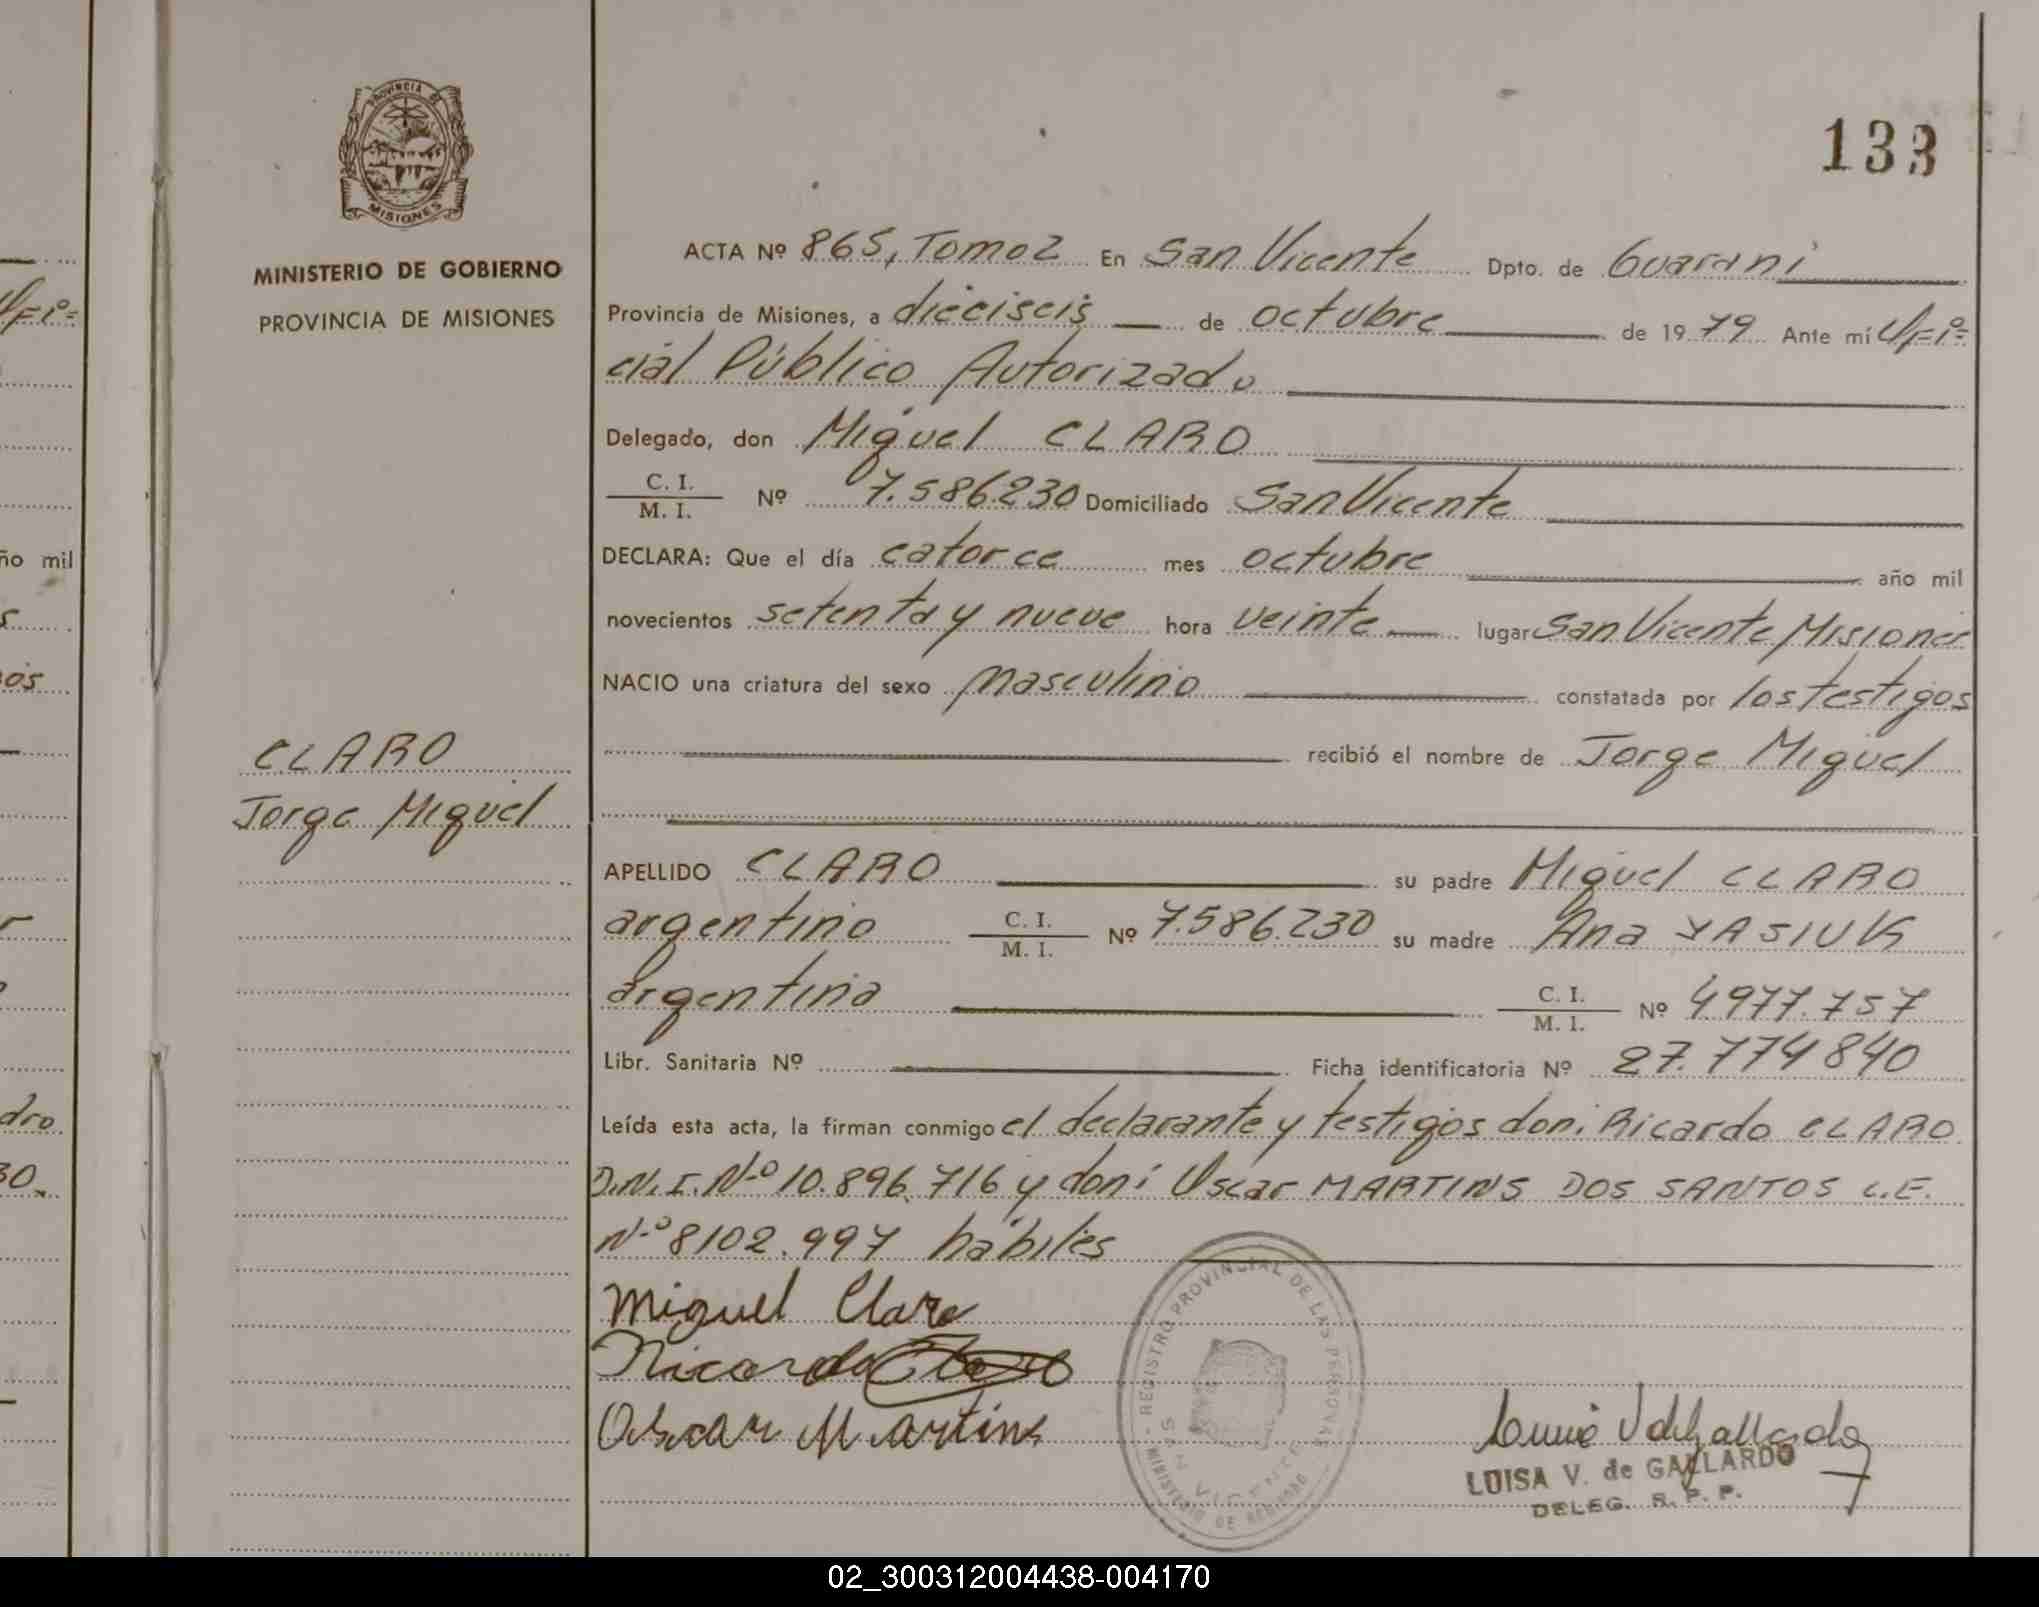 PROVINCIA DE
MISIONES
MINISTERIO DE GOBIERNO
PROVINCIA DE MISIONES
133
ACTA Nº 865, Tomo 2 En San Vicente Dpto. de Guaraní
Provincia de Misiones, a dieciseis de octubre de 1979 Ante mí Ofi=
cial Público Autorizado
Delegado, don Miguel CLARO
C. I.
M. I. Nº 7.586.230 Domiciliado San Vicente
DECLARA: Que el día catorce mes octubre año mil
novecientos setenta y nueve hora veinte lugar San Vicente Misiones
NACIO una criatura del sexo masculino constatada por los testigos
recibió el nombre de Jorge Miguel
CLARO
Jorge Miguel
APELLIDO CLARO su padre Miguel CLARO
argentino C. I. M. I. Nº 7.586.230 su madre Ana YASIUK
argentina C. I. M. I. Nº 4977.757
Libr. Sanitaria Nº Ficha identificatoria Nº 27.774840
Leída esta acta, la firman conmigo el declarante y testigos don: Ricardo CLARO
D.N.I. Nº 10.896.716 y don: Oscar MARTINS DOS SANTOS L.E.
Nº 8102.997 hábiles
Miguel Claro
Ricardo Claro
Oscar Martins
REGISTRO PROVINCIAL DE LAS PERSONAS
SAN VICENTE
MINISTERIO DE GOBIERNO
LUISA V. de GALLARDO
DELEG. R. P. P.
ño mil
dro
30.
02_300312004438-004170